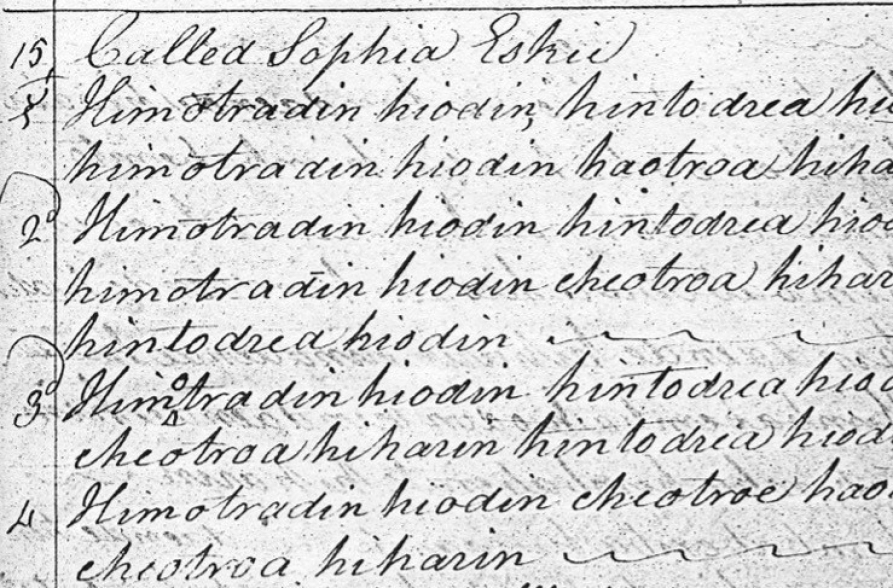 15 Called Sophia Eskie
1 Himotradin hiodin, hintodrea hi
himotradin hiodin haotroa hiha
2d Himotradin hiodin hintodrea hiod
himotradin hiodin cheotroa hihar
hintodrea hiodin
3d Himotradin hiodin hintodrea hiod
cheotroa hiharin hintodrea hiod
4 Himotradin hiodin cheotroe hao
cheotroa hiharin